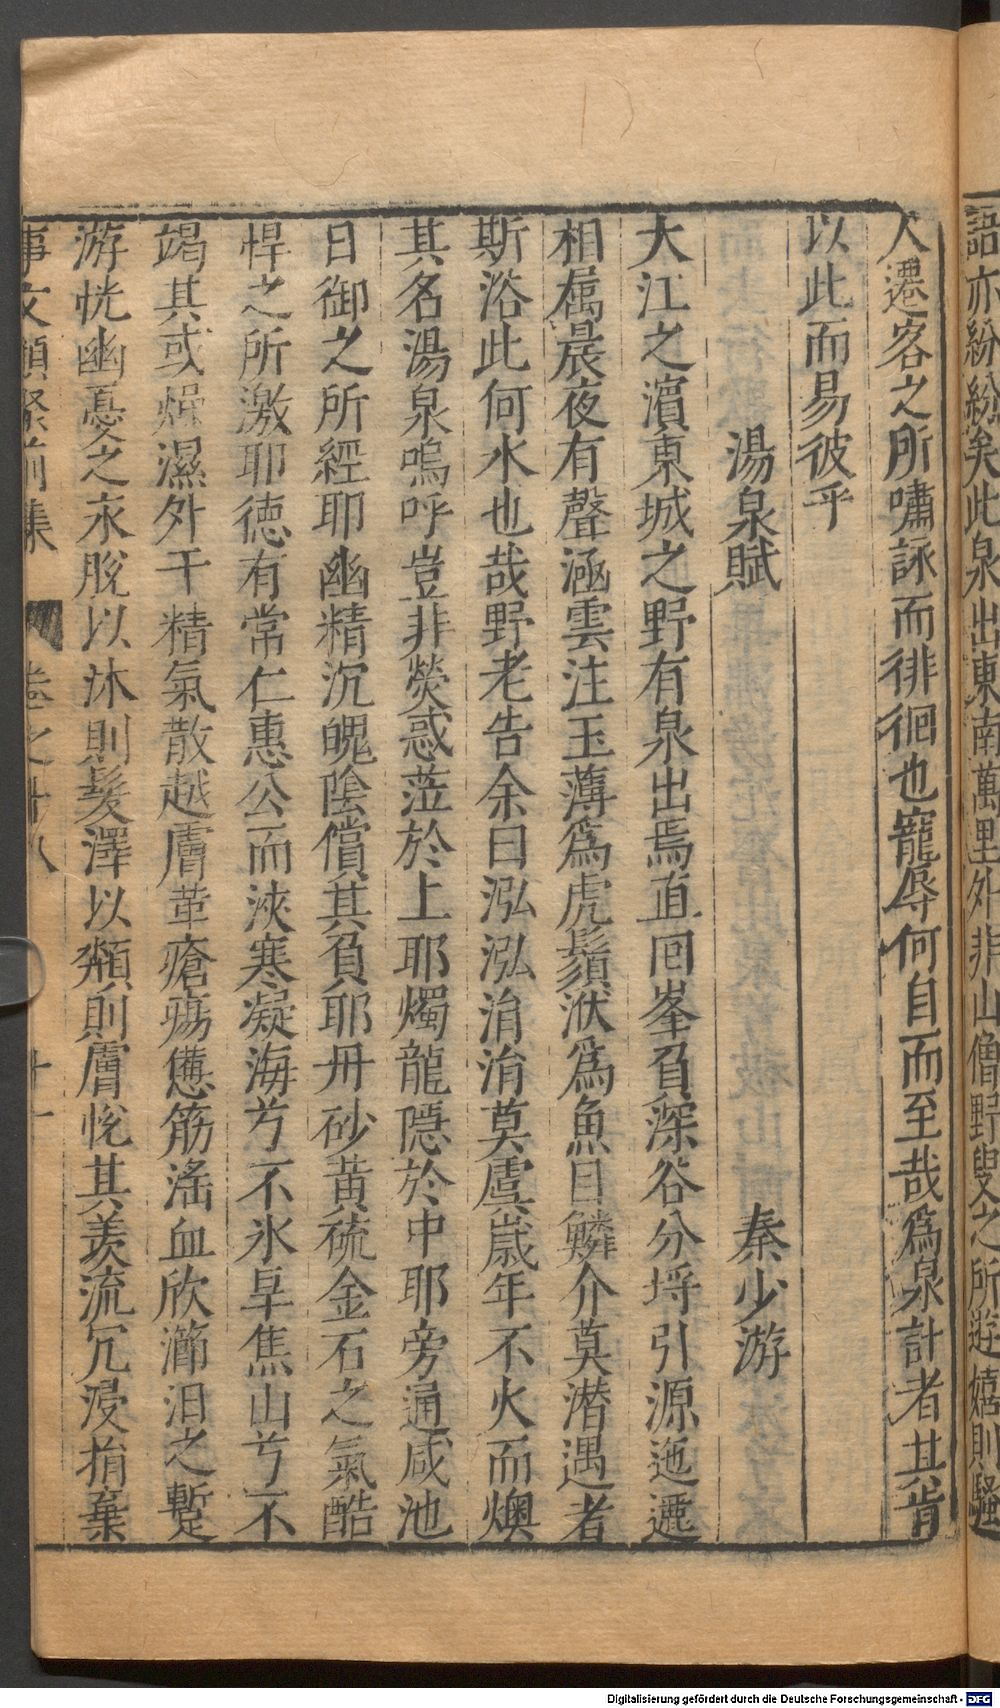 語亦紛紛矣此泉出東南萬里外非山僧野叟之所遊嬉則騷
人遷客之所嘯詠而徘徊也寵辱何自而至哉爲泉計者其肯
以此而易彼乎
湯泉賦 秦少游
大江之濵東城之野有泉出焉直囘峯負深谷分埓引源迤邐
相屬晨夜有聲涵雲注玉薄爲虎鬚洑爲魚目鱗介莫潜遇者
斯浴此何水也哉野老告余曰泓泓涓涓莫虞嵗年不火而燠
其名湯泉嗚呼豈非熒惑蒞於上耶燭龍隱於中耶旁通咸池
日御之所經耶幽精沉魄陰償其負耶丹砂黄硫金石之氣酷
悍之所激耶徳有常仁惠公而浹寒凝海兮不氷旱焦山兮不
竭其或燥濕外干精氣散越膚革瘡瘍憊筋滛血欣瀄汨之蹔
游恍幽憂之永脫以沐則髮澤以頮則膚恱其羨流冗浸捐棄
事文類聚前集 卷之十八 十一
Digitalisierung gefördert durch die Deutsche Forschungsgemeinschaft - DFG